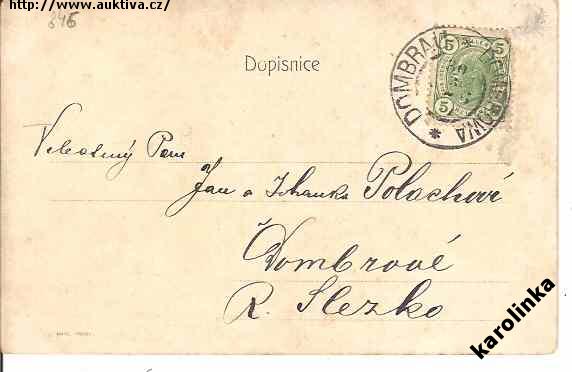 http://www.auktiva.cz/
646
Dopisnice
DOMBRAU * DOMBROWA *
5 5
5 5
Velectěný Pan
Jan a Johanka Polachové
Dombrové
R. Slezko
karolinka